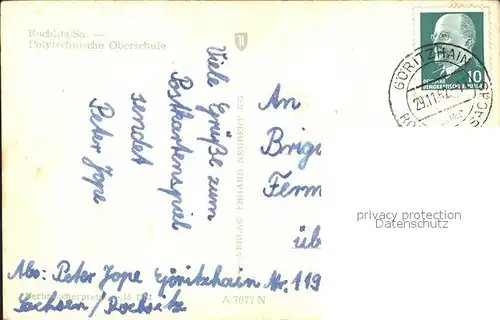 Rochlitz/Sa. —
Polytechnische Oberschule
Viele Grüße zum
Postkartenspiel
sendet
Peter Jope
VERLAG ERHARD NEUBERT KG
10
DEUTSCHE
DEMOKRATISCHE REPUBLIK
GÖRITZHAIN
29.11.
An
Brig
Ferm
üb
privacy protection
www.oldthing.de
Abs: Peter Jope Göritzhain Nr. 119
Sachsen/Rochlitz
Verbraucherpreis
A 7077 N